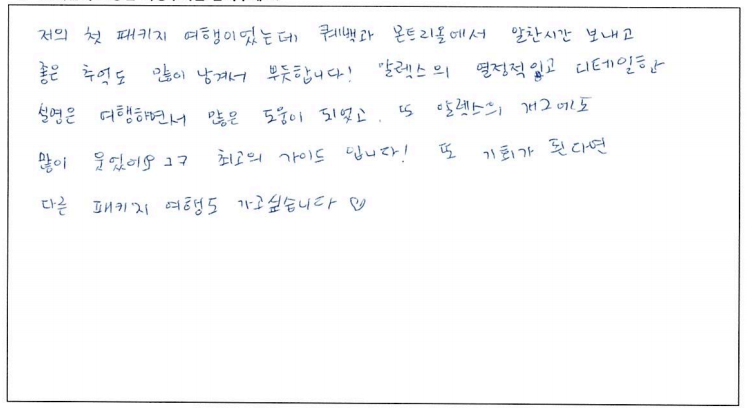 저의 첫 패키지 여행이었는데 퀘백과 몬트리올에서 알찬시간 보내고
좋은 추억도 많이 남겨서 뿌듯합니다! 알렉스의 열정적이고 디테일한
설명은 여행하면서 많은 도움이 되었고, 또 알렉스의 개그에도
많이 웃었어요 ㅋㅋ 최고의 가이드 입니다! 또 기회가 된다면
다른 패키지 여행도 가고싶습니다 ♡